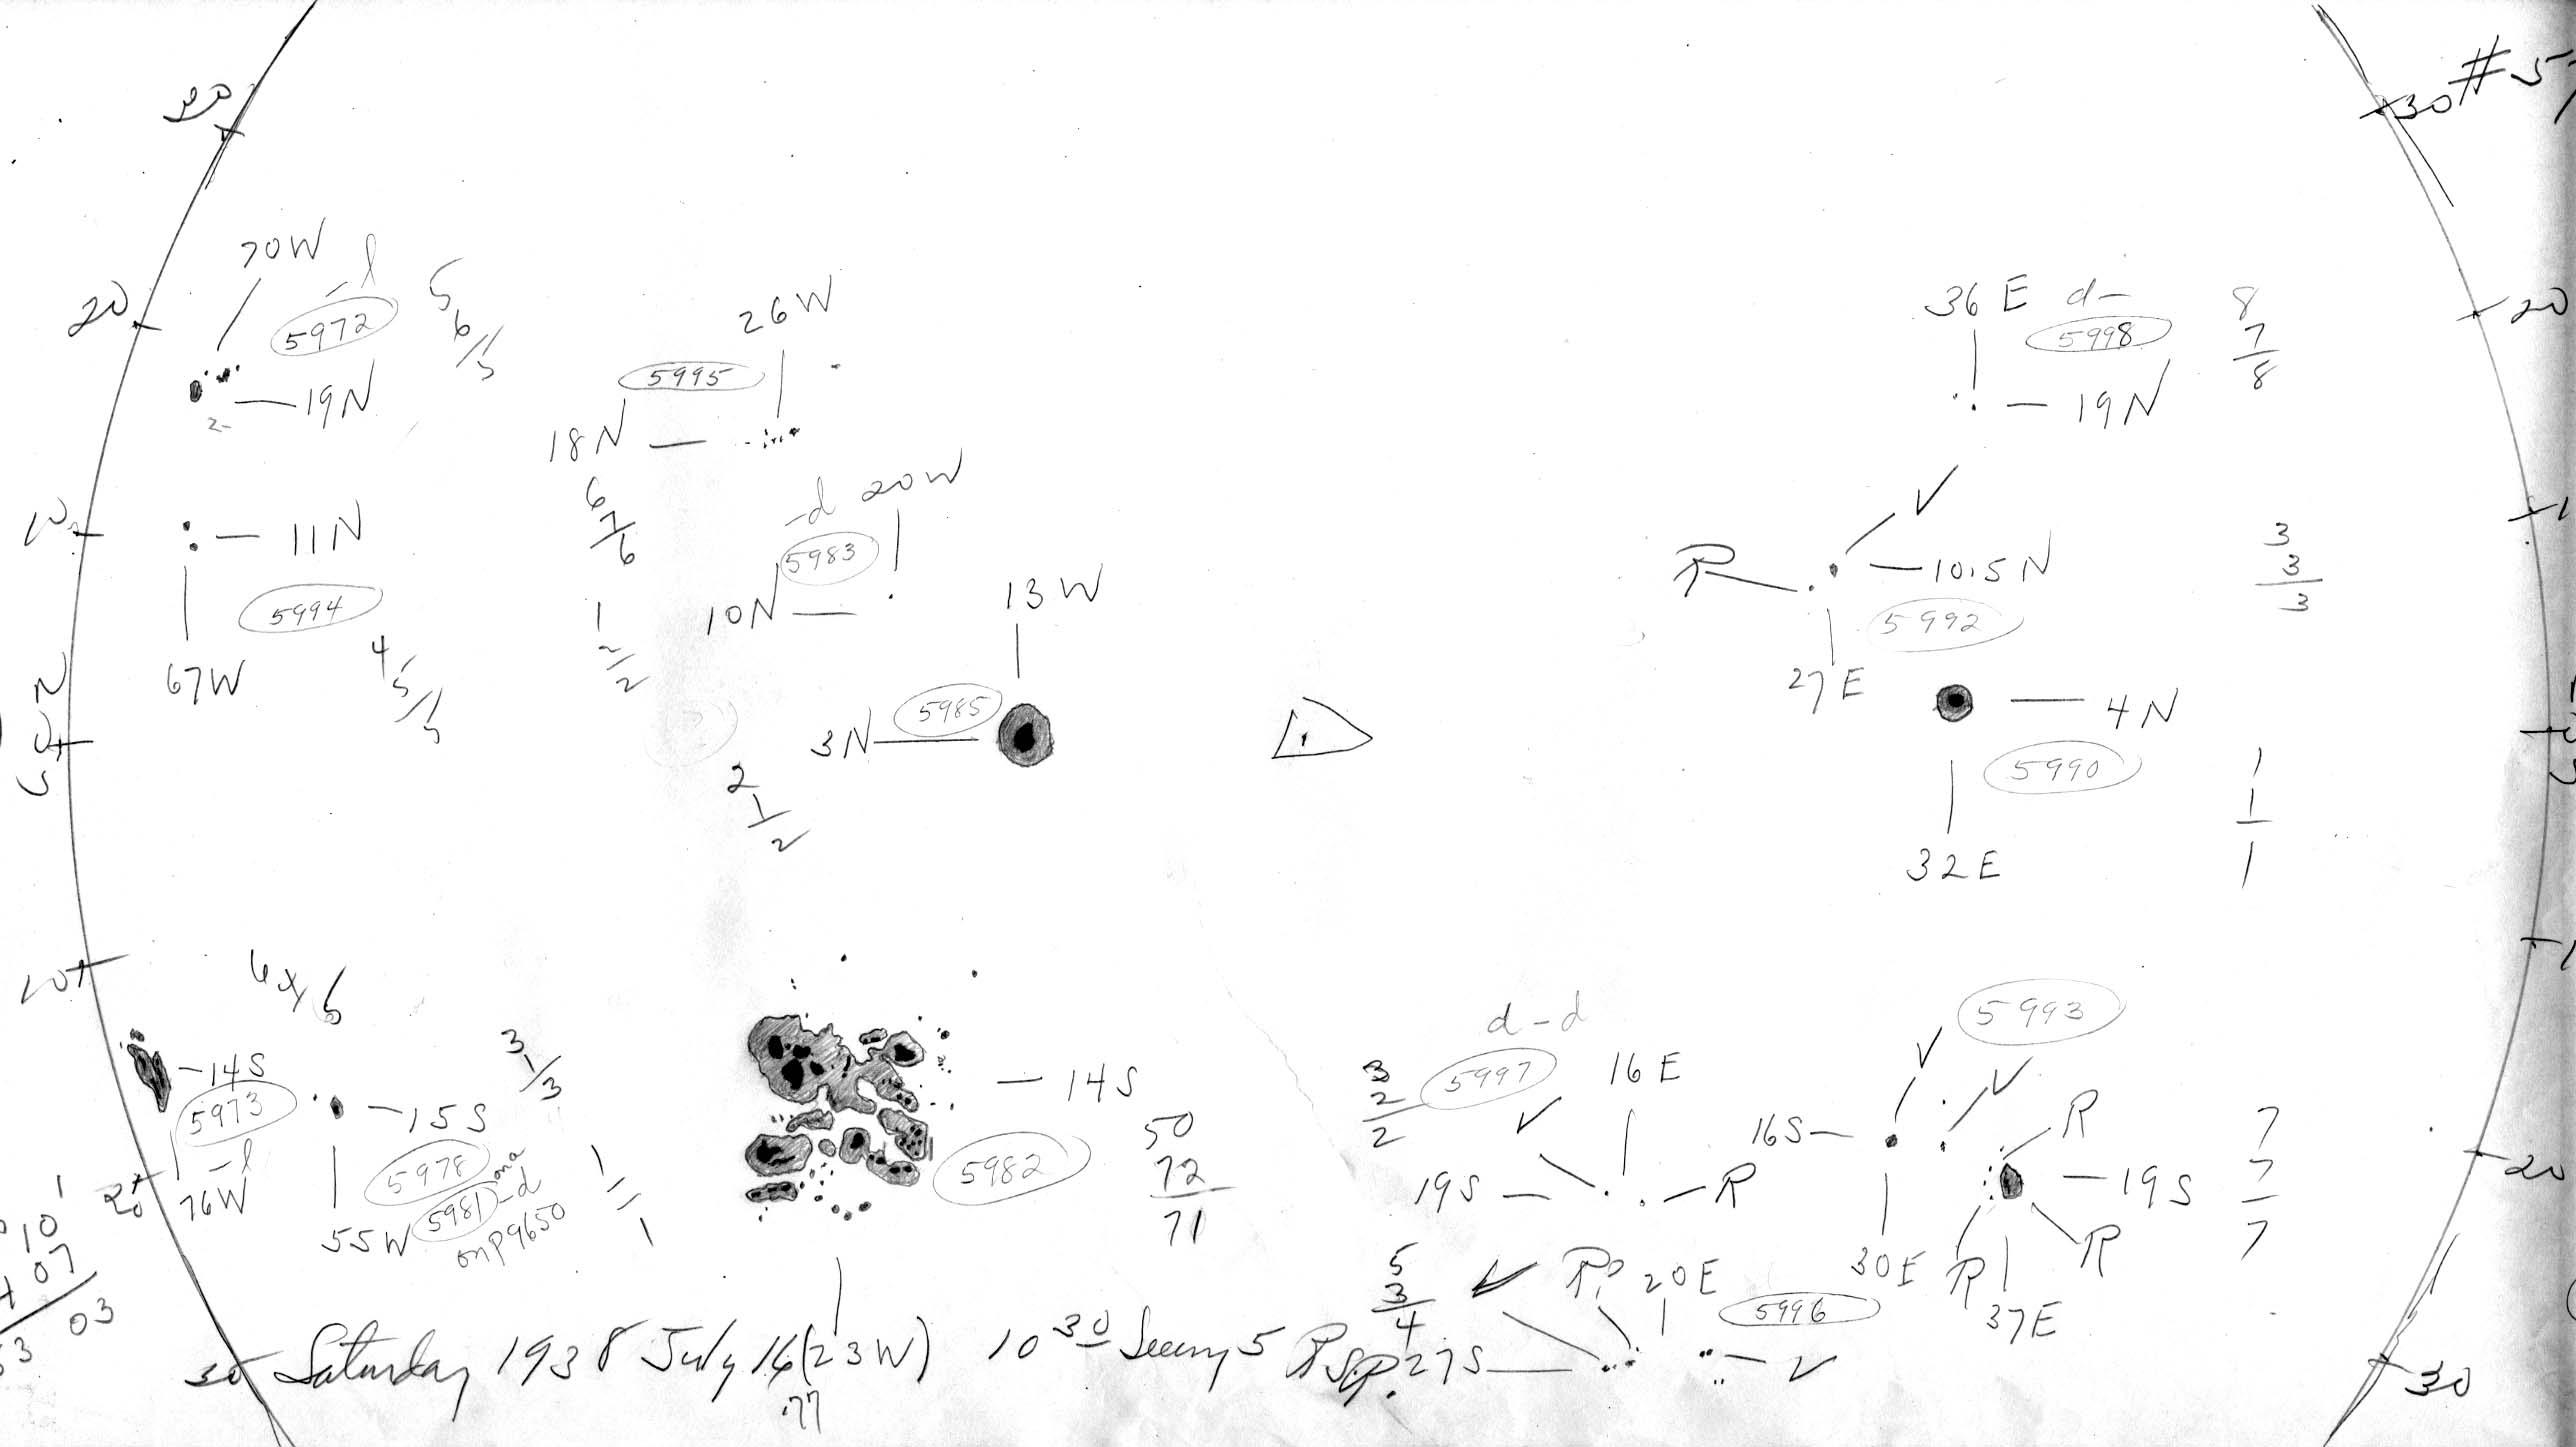 30
30 # 5
70W
-l
5
6/5
5972
20
19N
2
26W
5995
18N
6
7
6
36 E d-
5998
19N
8
7
8
20
-d 20W
5983
10N
1
2
2
10
11N
5994
67W
4
5/5
V
R
10.5N
5992
27E
3
3
3
13W
5985
3N
2
1
2
4N
5990
32E
1
1
1
10
14S
5973
-l
76W
20
3
1
3
15S
5978
5981 -d
on p 9650
55W
1
1
1
14S
5982
50
72
71
d-d
3
2
2
5997
16E
V
19S
R
5993
V
V
16S
R
19S
30E
R
R
37E
7
7
7
20
10
07
03
5
3
4
V
R?
20E
5996
27S
V
30
30 Saturday 1938 July 16 (23W) 10 30 Seeing 5
.77